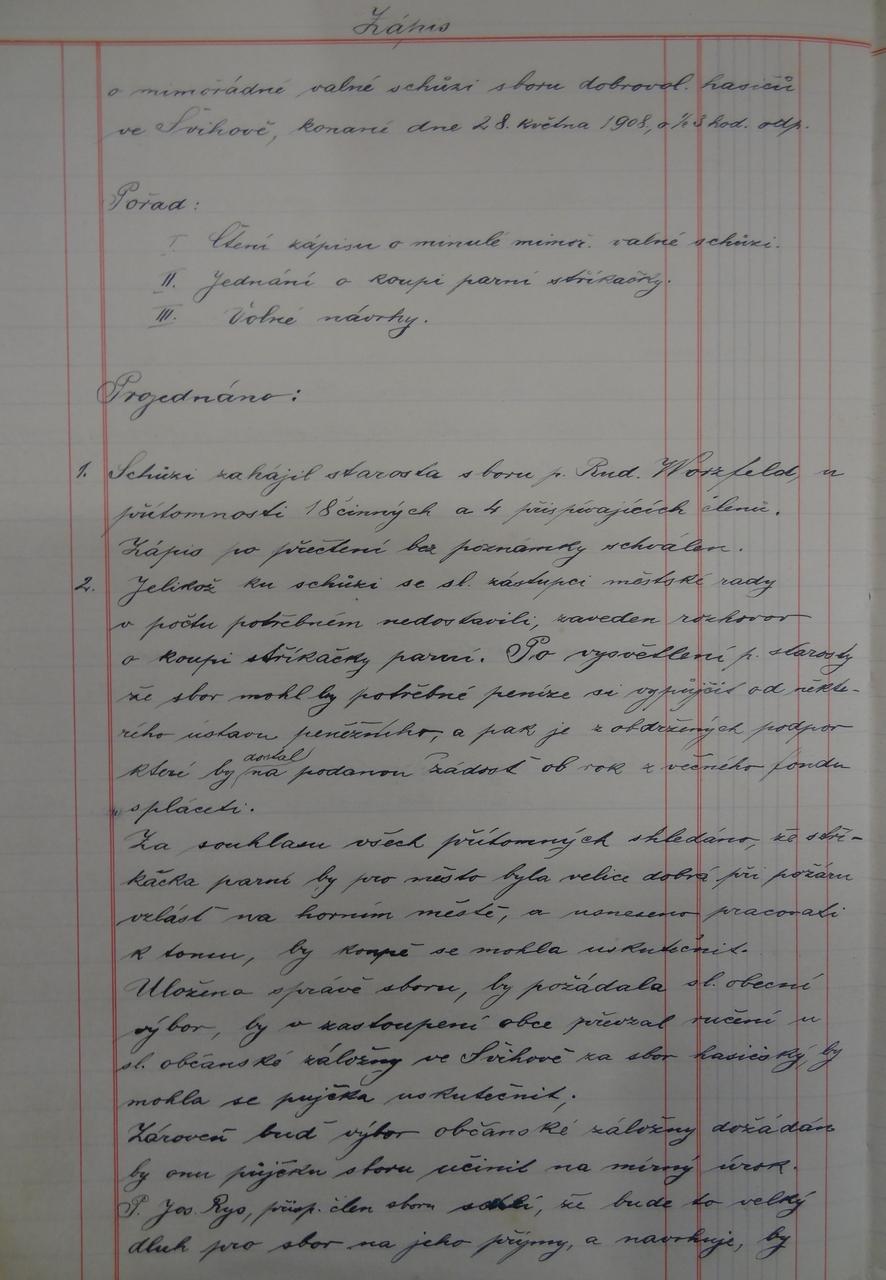 Zápis
o mimořádné valné schůzi sboru dobrovol. hasičů
ve Švihově, konané dne 28. května 1908, o ½ 3 hod. odp.
Pořad:
I. Čtení zápisu o minulé mimoř. valné schůzi.
II. Jednání o koupi parní stříkačky.
III. Volné návrhy.
Projednáno:
1. Schůzi zahájil starosta sboru p. Rud. Worzfeld, u
přítomnosti 18 činných a 4 přispívajících členů.
Zápis po přečtení bez poznámky schválen.
2. Jelikož ku schůzi se sl. zástupci městské rady
v počtu potřebném nedostavili, zaveden rozhovor
o koupi stříkačky parní. Po vysvětlení p. starosty
že sbor mohl by potřebné peníze si vypůjčit od někte-
rého ústavu peněžního, a pak je z obdržených podpor
které by dostal na podanou žádost ob rok z večného fondu
spláceti.
Za souhlasu všech přítomných shledáno, že stří-
kačka parní by pro město byla velice dobrá při požáru
vzlášť na horním městě, a usneseno pracovati
k tomu, by koupě se mohla uskutečnit.
Uložena správě sboru, by požádala sl. obecní
výbor, by v zastoupení obce převzal ručení u
sl. občanské záložny ve Švihově za sbor hasičský, by
mohla se pujčka uskutečnit,.
Zároveň buď výbor občanské záložny dožádán
by onu půjčku sboru učinil na mírný úrok.
P. Jos. Rys, přisp. člen sboru sdělí, že bude to velký
dluh pro sbor na jeho příjmy, a navrhuje, by